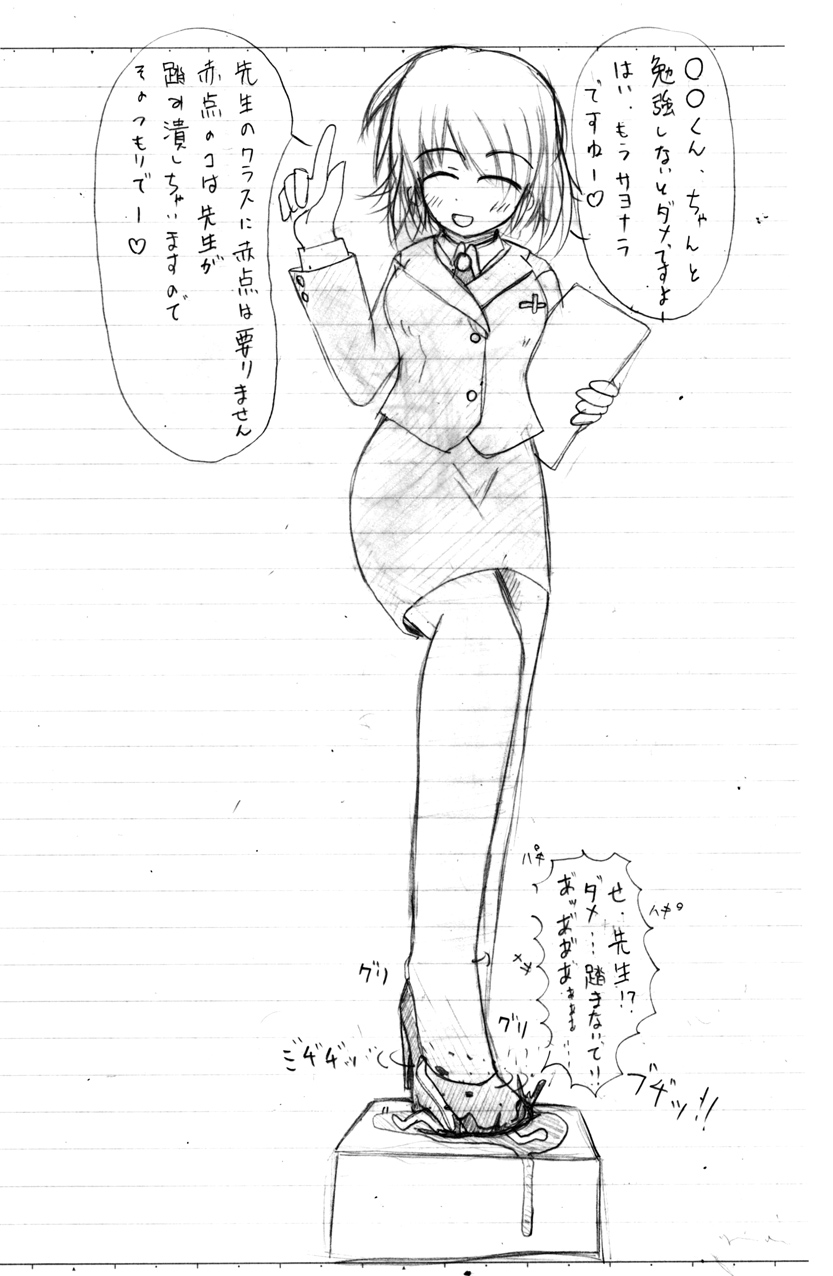 〇〇くん、ちゃんと
勉強しないとダメですよー
はい、もうサヨナラ
ですねー♡
先生のクラスに赤点は要りません
赤点のコは先生が
踏み潰しちゃいますので
そのつもりでー♡
せ、先生!?
ダメ…踏まないで!!
あ゛ッあ゛あ゛あ゛ぁぁぁ…
パキ
メキ
グリ
グリ
ミヂヂッ
ブヂッ!!